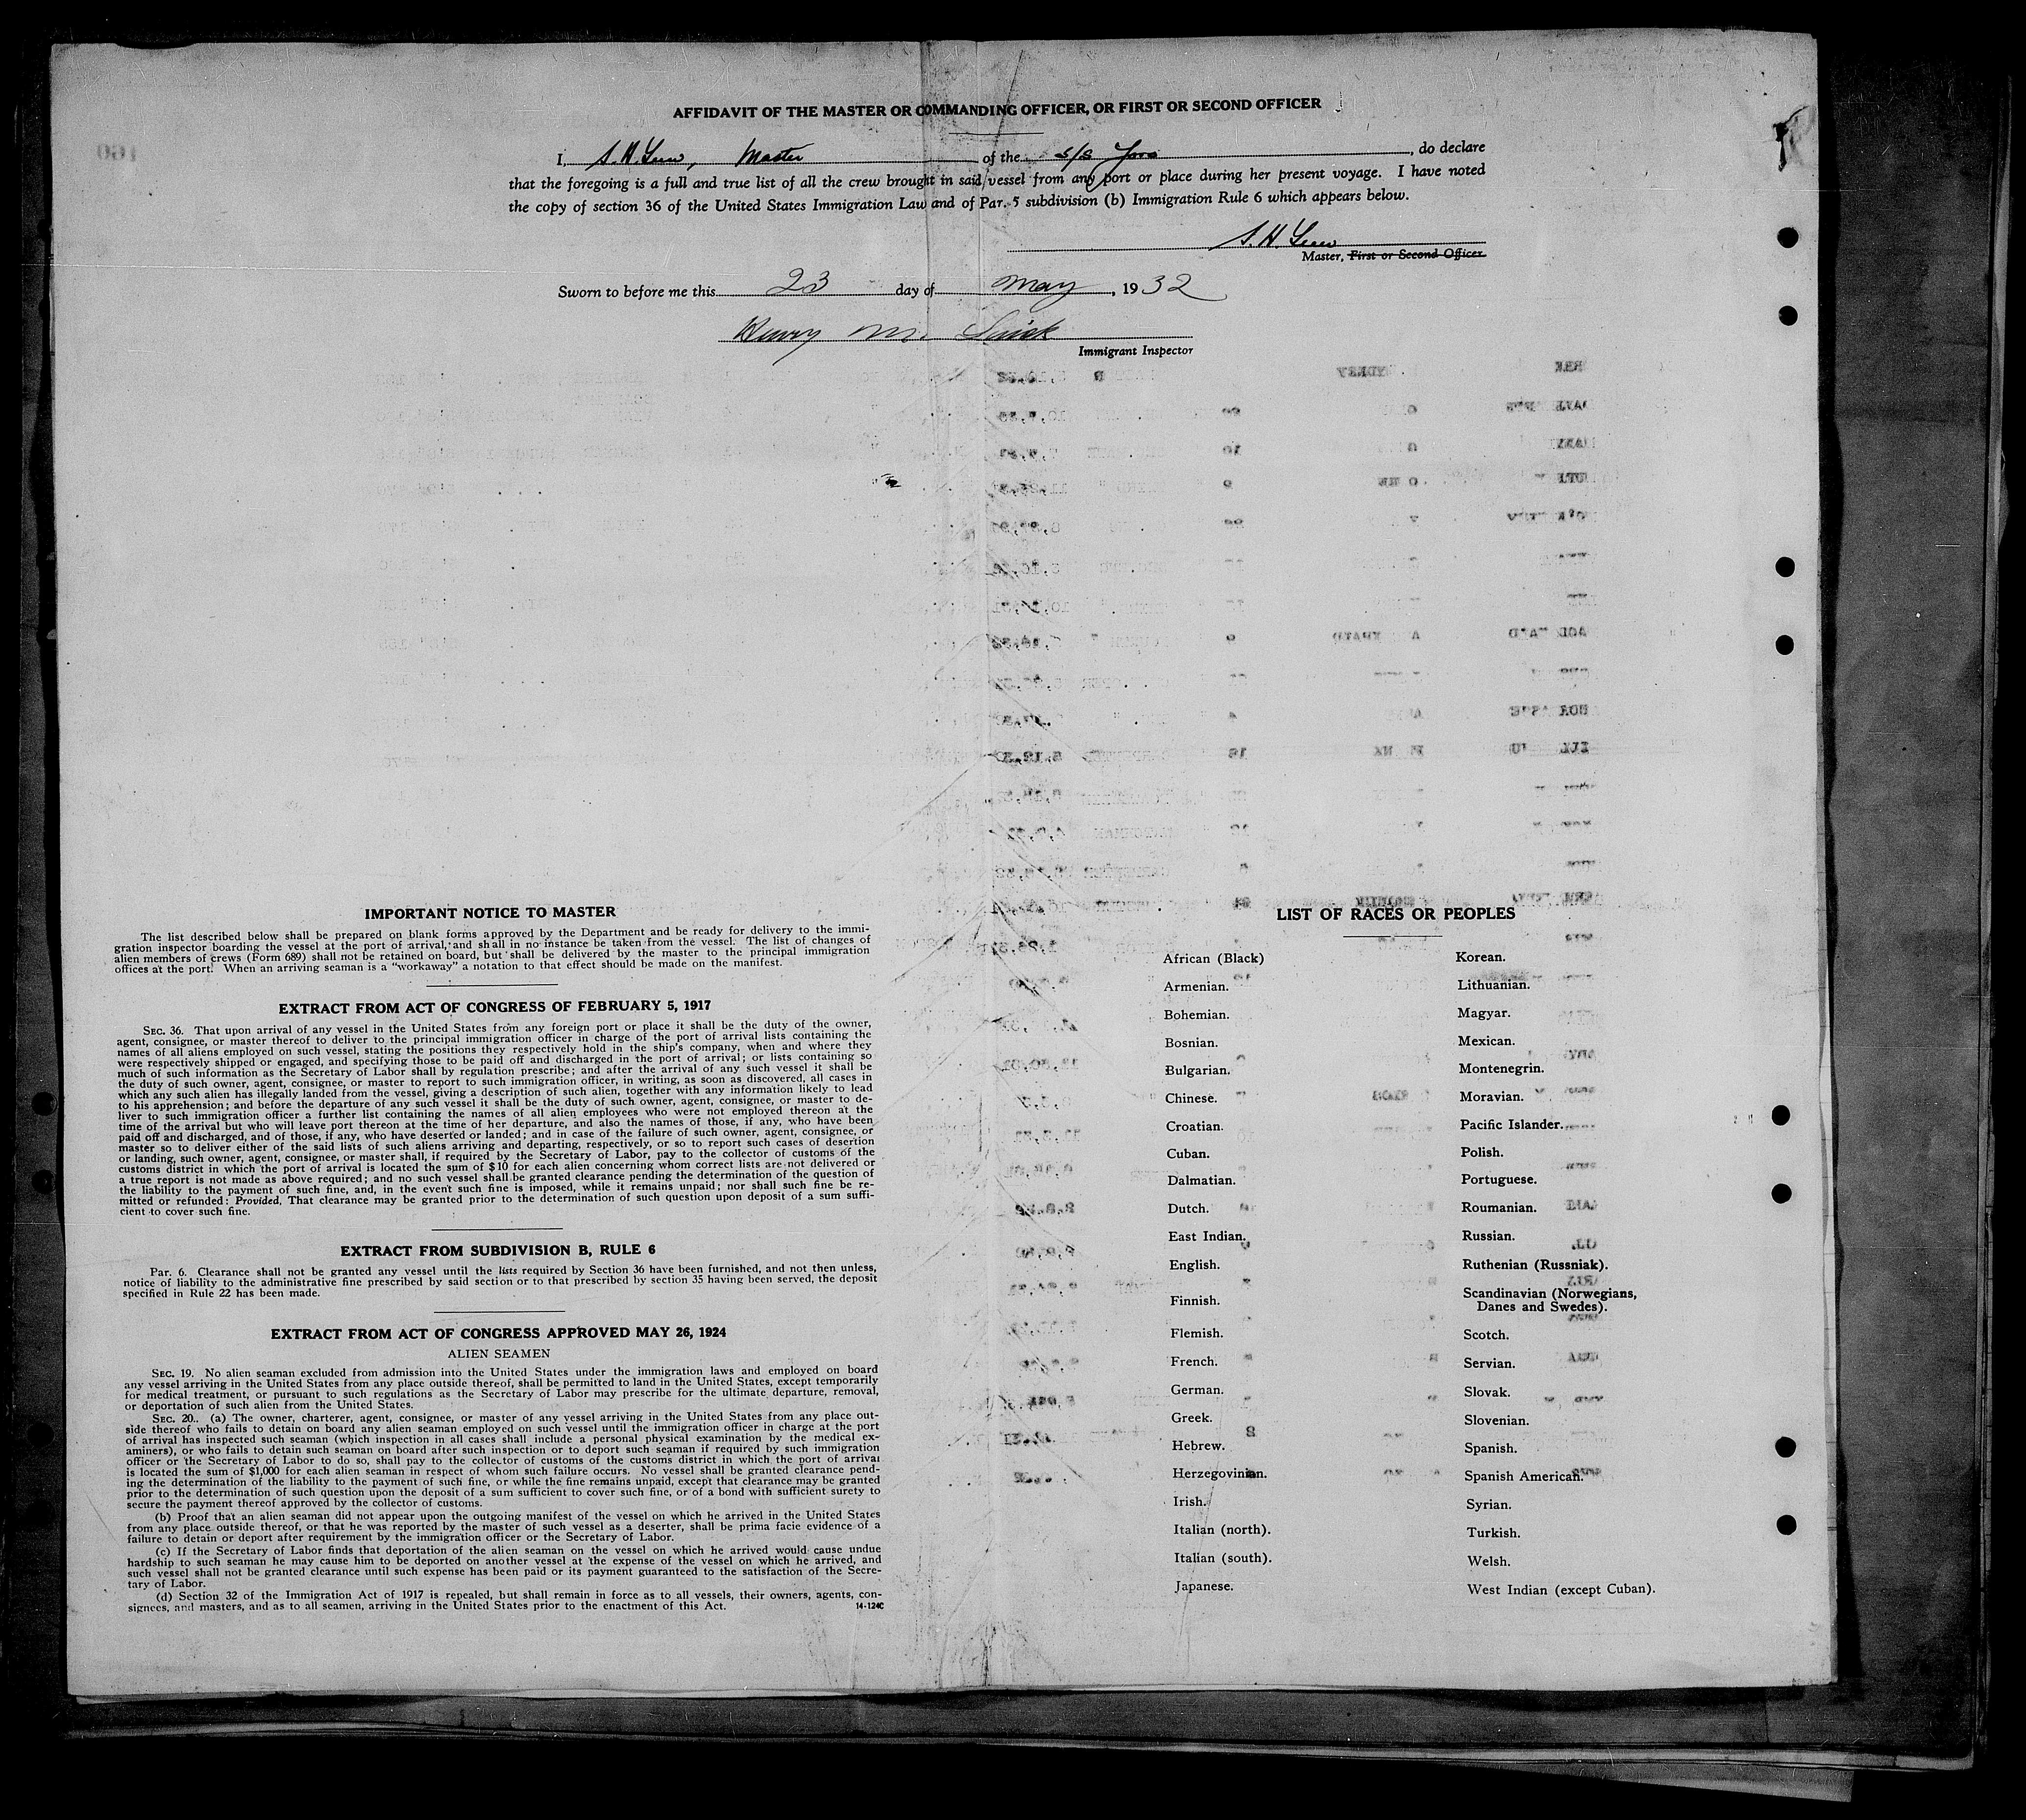 AFFIDAVIT OF THE MASTER OR COMMANDING OFFICER, OR FIRST OR SECOND OFFICER
I, S. H. Master of the s/s , do declare
that the foregoing is a full and true list of all the crew brought in said vessel from any port or place during her present voyage. I have noted
the copy of section 36 of the United States Immigration Law and of Par. 5 subdivision (b) Immigration Rule 6 which appears below.
S. H.
Master, First or Second Officer.
Sworn to before me this 23 day of May, 1932
Henry M.
Immigrant Inspector
IMPORTANT NOTICE TO MASTER
The list described below shall be prepared on blank forms approved by the Department and be ready for delivery to the immi-
gration inspector boarding the vessel at the port of arrival, and shall in no instance be taken from the vessel. The list of changes of
alien members of crews (Form 689) shall not be retained on board, but shall be delivered by the master to the principal immigration
offices at the port. When an arriving seaman is a “workaway” a notation to that effect should be made on the manifest.
EXTRACT FROM ACT OF CONGRESS OF FEBRUARY 5, 1917
SEC. 36. That upon arrival of any vessel in the United States from any foreign port or place it shall be the duty of the owner,
agent, consignee, or master thereof to deliver to the principal immigration officer in charge of the port of arrival lists containing the
names of all aliens employed on such vessel, stating the positions they respectively hold in the ship's company, when and where they
were respectively shipped or engaged, and specifying those to be paid off and discharged in the port of arrival; or lists containing so
much of such information as the Secretary of Labor shall by regulation prescribe; and after the arrival of any such vessel it shall be
the duty of such owner, agent, consignee, or master to report to such immigration officer, in writing, as soon as discovered, all cases in
which any such alien has illegally landed from the vessel, giving a description of such alien, together with any information likely to lead
to his apprehension; and before the departure of any such vessel it shall be the duty of such owner, agent, consignee, or master to de-
liver to such immigration officer a further list containing the names of all alien employees who were not employed thereon at the
time of the arrival but who will leave port thereon at the time of her departure, and also the names of those, if any, who have been
paid off and discharged, and of those, if any, who have deserted or landed; and in case of the failure of such owner, agent, consignee, or
master so to deliver either of the said lists of such aliens arriving and departing, respectively, or so to report such cases of desertion
or landing, such owner, agent, consignee, or master shall, if required by the Secretary of Labor, pay to the collector of customs of the
customs district in which the port of arrival is located the sum of $10 for each alien concerning whom correct lists are not delivered or
a true report is not made as above required; and no such vessel shall be granted clearance pending the determination of the question of
the liability to the payment of such fine, and, in the event such fine is imposed, while it remains unpaid; nor shall such fine be re-
mitted or refunded: Provided, That clearance may be granted prior to the determination of such question upon deposit of a sum suffi-
cient to cover such fine.
EXTRACT FROM SUBDIVISION B, RULE 6
Par. 6. Clearance shall not be granted any vessel until the lists required by Section 36 have been furnished, and not then unless,
notice of liability to the administrative fine prescribed by said section or to that prescribed by section 35 having been served, the deposit
specified in Rule 22 has been made.
EXTRACT FROM ACT OF CONGRESS APPROVED MAY 26, 1924
ALIEN SEAMEN
SEC. 19. No alien seaman excluded from admission into the United States under the immigration laws and employed on board
any vessel arriving in the United States from any place outside thereof, shall be permitted to land in the United States, except temporarily
for medical treatment, or pursuant to such regulations as the Secretary of Labor may prescribe for the ultimate departure, removal,
or deportation of such alien from the United States.
SEC. 20. (a) The owner, charterer, agent, consignee, or master of any vessel arriving in the United States from any place out-
side thereof who fails to detain on board any alien seaman employed on such vessel until the immigration officer in charge at the port
of arrival has inspected such seaman (which inspection in all cases shall include a personal physical examination by the medical ex-
aminers), or who fails to detain such seaman on board after such inspection or to deport such seaman if required by such immigration
officer or the Secretary of Labor to do so, shall pay to the collector of customs of the customs district in which the port of arrival
is located the sum of $1,000 for each alien seaman in respect of whom such failure occurs. No vessel shall be granted clearance pend-
ing the determination of the liability to the payment of such fine, or while the fine remains unpaid, except that clearance may be granted
prior to the determination of such question upon the deposit of a sum sufficient to cover such fine, or of a bond with sufficient surety to
secure the payment thereof approved by the collector of customs.
(b) Proof that an alien seaman did not appear upon the outgoing manifest of the vessel on which he arrived in the United States
from any place outside thereof, or that he was reported by the master of such vessel as a deserter, shall be prima facie evidence of a
failure to detain or deport after requirement by the immigration officer or the Secretary of Labor.
(c) If the Secretary of Labor finds that deportation of the alien seaman on the vessel on which he arrived would cause undue
hardship to such seaman he may cause him to be deported on another vessel at the expense of the vessel on which he arrived, and
such vessel shall not be granted clearance until such expense has been paid or its payment guaranteed to the satisfaction of the Secre-
tary of Labor.
(d) Section 32 of the Immigration Act of 1917 is repealed, but shall remain in force as to all vessels, their owners, agents, con-
signees, and masters, and as to all seamen, arriving in the United States prior to the enactment of this Act.
14-124C
LIST OF RACES OR PEOPLES
African (Black)
Armenian.
Bohemian.
Bosnian.
Bulgarian.
Chinese.
Croatian.
Cuban.
Dalmatian.
Dutch.
East Indian.
English.
Finnish.
Flemish.
French.
German.
Greek.
Hebrew.
Herzegovinian.
Irish.
Italian (north).
Italian (south).
Japanese.
Korean.
Lithuanian.
Magyar.
Mexican.
Montenegrin.
Moravian.
Pacific Islander.
Polish.
Portuguese.
Roumanian.
Russian.
Ruthenian (Russniak).
Scandinavian (Norwegians,
Danes and Swedes).
Scotch.
Servian.
Slovak.
Slovenian.
Spanish.
Spanish American.
Syrian.
Turkish.
Welsh.
West Indian (except Cuban).